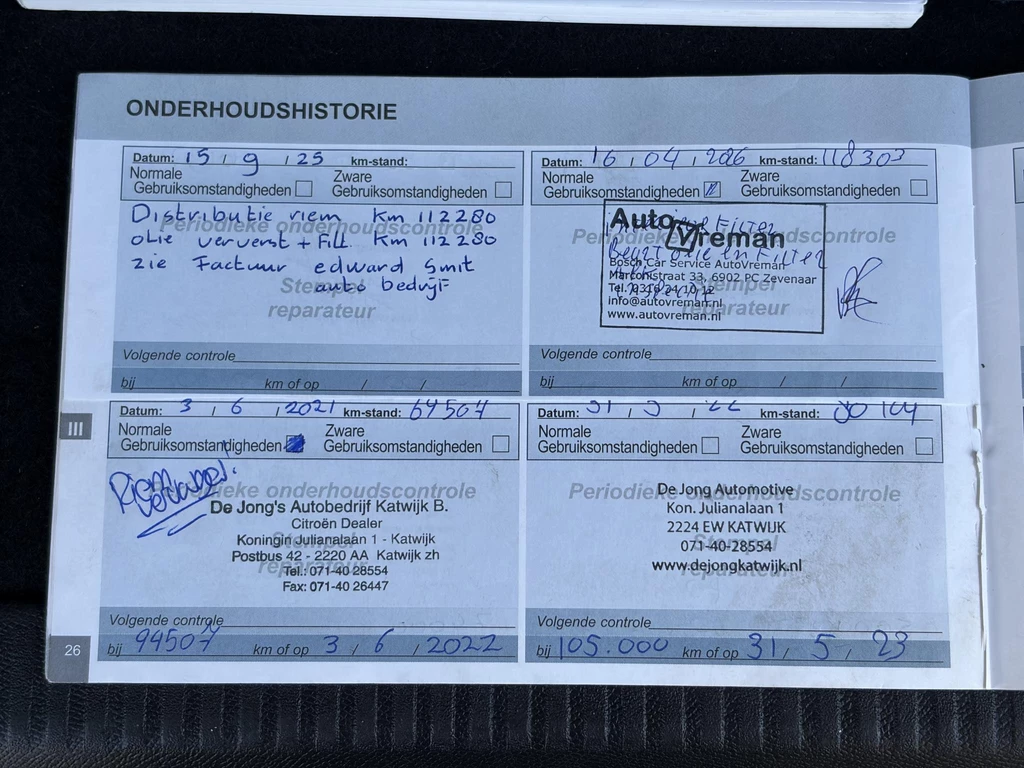 ONDERHOUDSHISTORIE
Datum: 15 / 9 / 25 km-stand:
Normale Gebruiksomstandigheden
Zware Gebruiksomstandigheden
Periodieke onderhoudscontrole
Distributie riem Km 112280
olie ververst + Filt. Km 112280
zie Factuur edward Smit
auto bedrijf
Stempel
reparateur
Volgende controle
bij km of op / /
Datum: 16 / 04 / 2026 km-stand: 118303
Normale Gebruiksomstandigheden
Zware Gebruiksomstandigheden
Periodieke onderhoudscontrole
Auto Vreman
Filter
en Filter
Bosch Car Service AutoVreman
Marconistraat 33, 6902 PC Zevenaar
Tel. 0316
info@autovreman.nl
www.autovreman.nl
Stempel
reparateur
Volgende controle
bij km of op / /
III
Datum: 3 / 6 / 2021 km-stand: 64507
Normale Gebruiksomstandigheden
Zware Gebruiksomstandigheden
Riem
Periodieke onderhoudscontrole
De Jong's Autobedrijf Katwijk B.
Citroën Dealer
Koningin Julianalaan 1 - Katwijk
Postbus 42 - 2220 AA Katwijk zh
Tel.: 071-40 28554
Fax: 071-40 26447
Stempel
reparateur
Volgende controle
bij 94507 km of op 3 / 6 / 2022
Datum: 31 / 5 / 22 km-stand: 80104
Normale Gebruiksomstandigheden
Zware Gebruiksomstandigheden
Periodieke onderhoudscontrole
De Jong Automotive
Kon. Julianalaan 1
2224 EW KATWIJK
071-40-28554
www.dejongkatwijk.nl
Stempel
reparateur
Volgende controle
bij 105.000 km of op 31 / 5 / 23
26